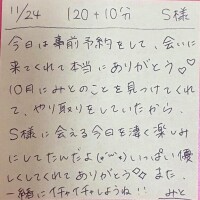 11/24 120+10分 S様
今日は事前予約をして、会いに
来てくれて本当にありがとう♡♡
10月にみとのことを見つけてくれ
て、やり取りをしていたから、
S様に会える今日を凄く楽しみ
にしてたんだよ(〃'▽'〃)いっぱい優
しくしてくれてありがとう☆また、
一緒にイチャイチャしようね!! みと